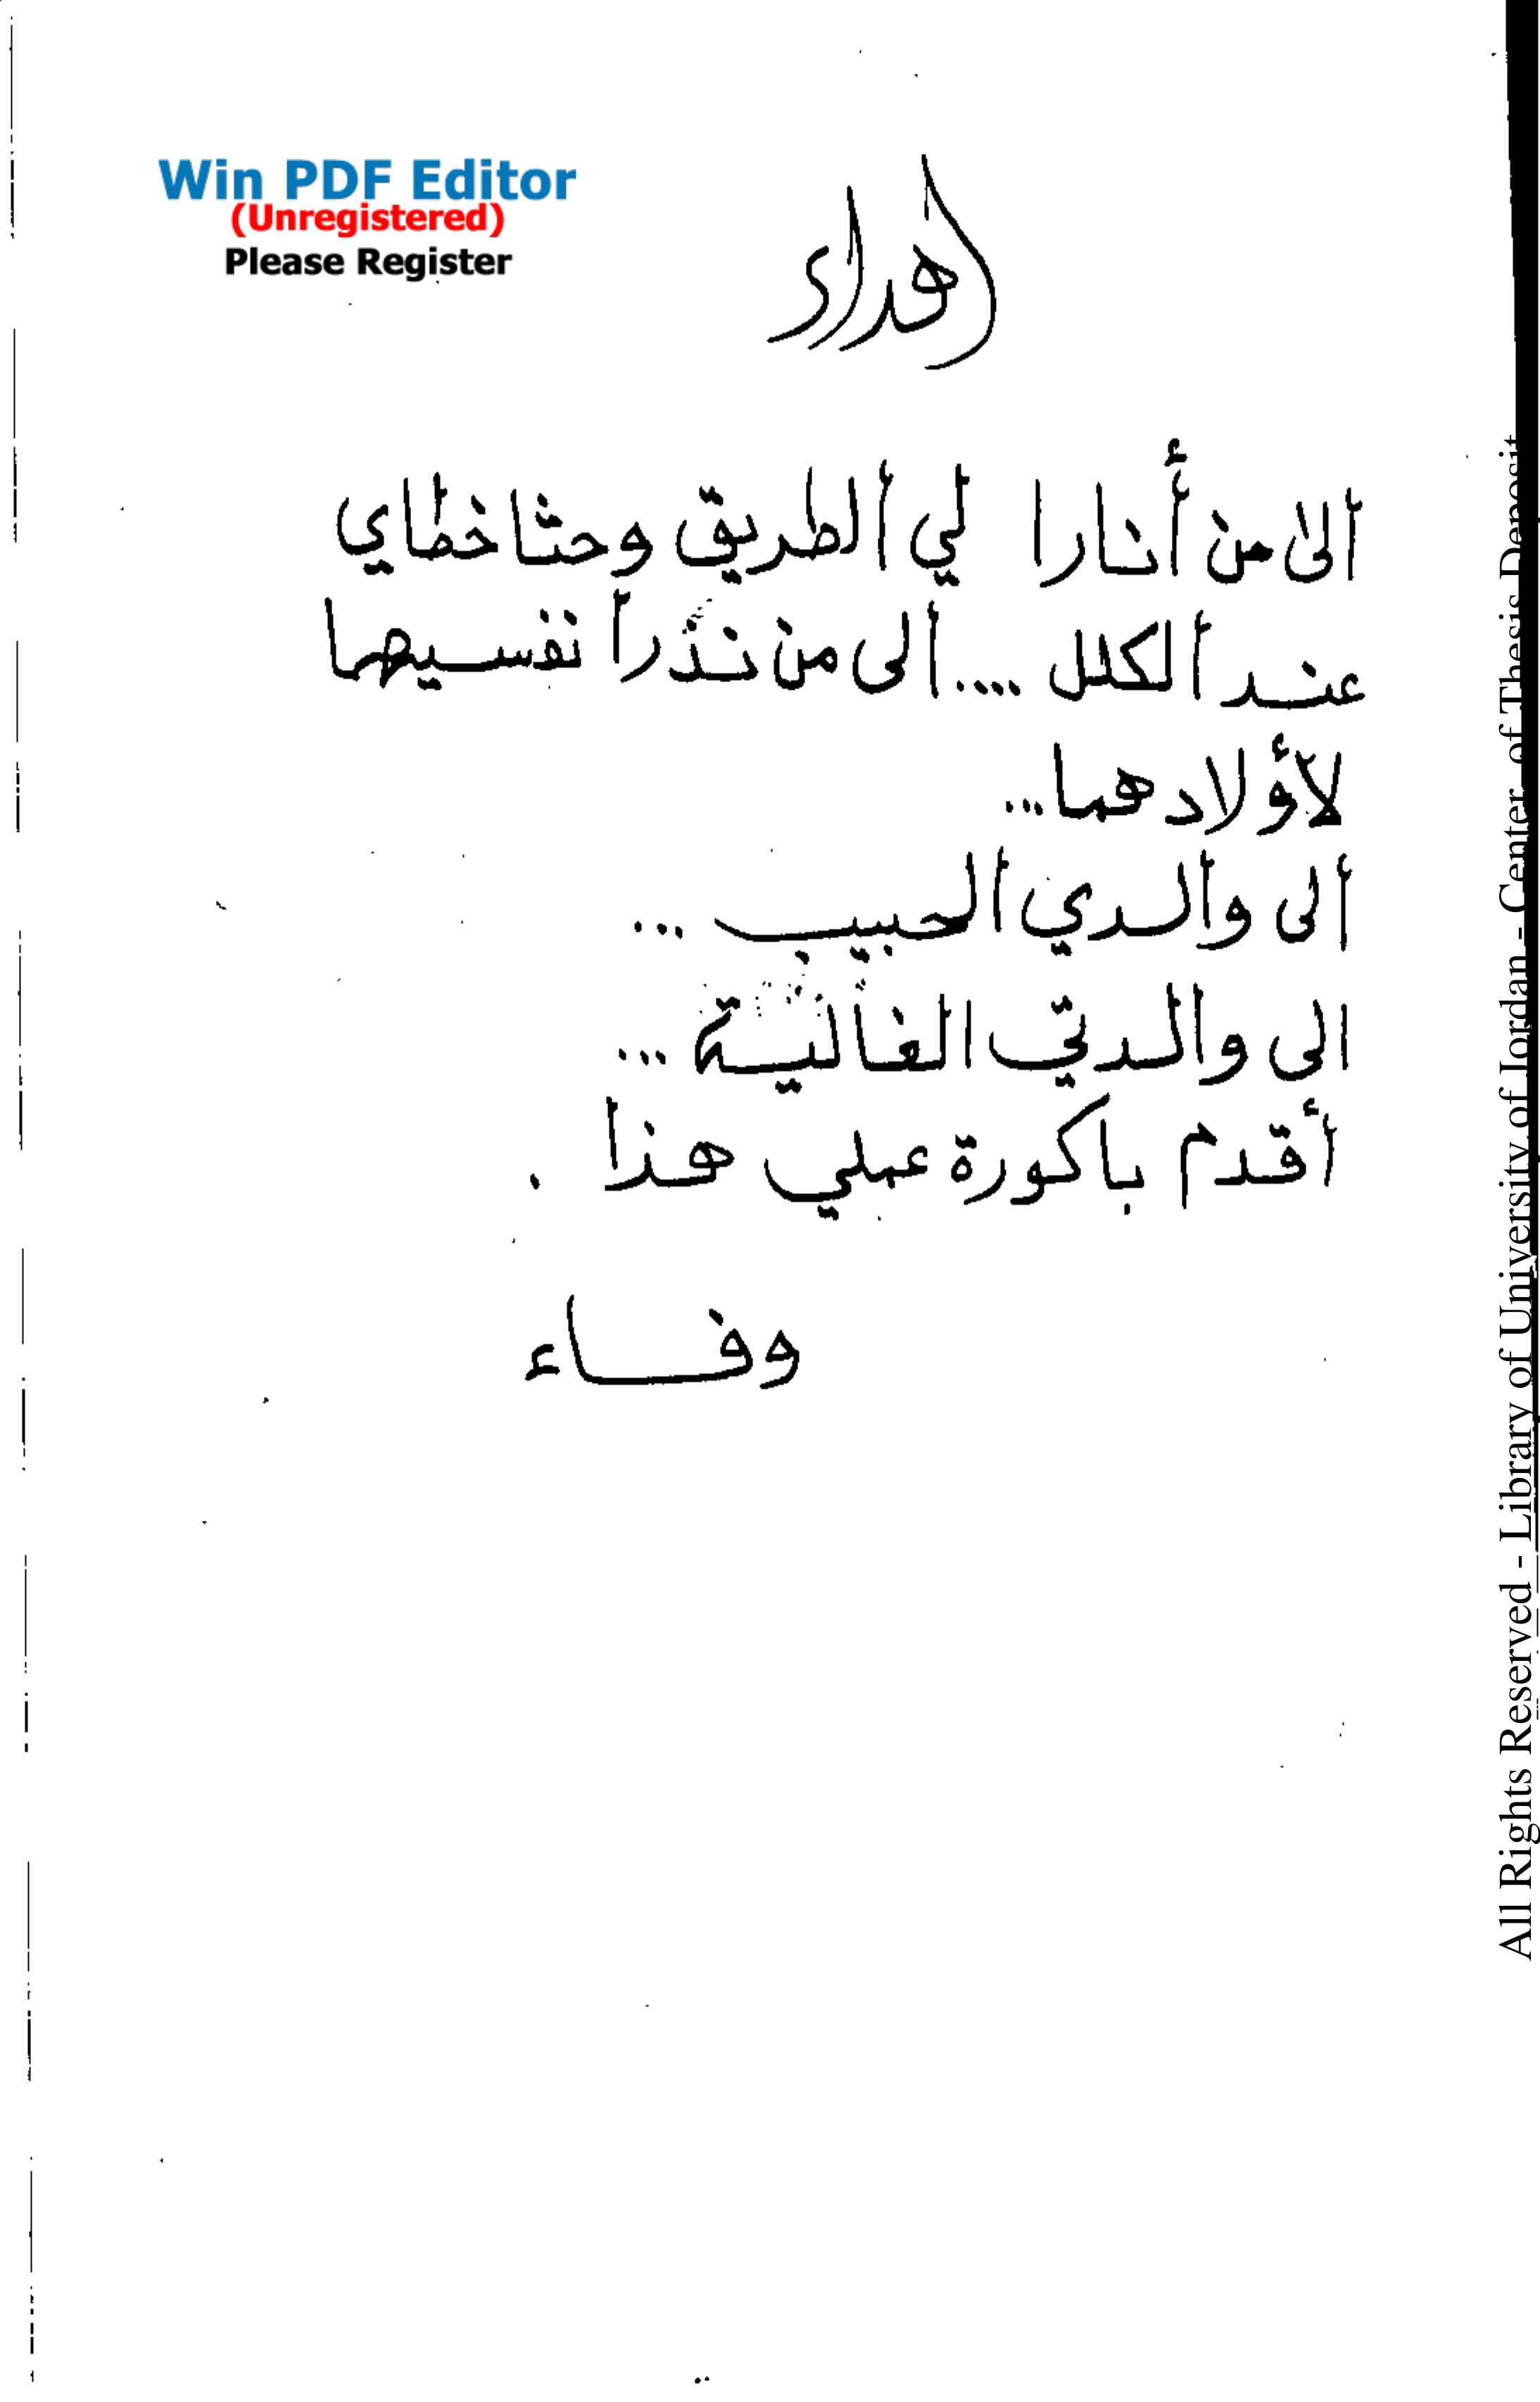 Win PDF Editor
(Unregistered)
Please Register
اهداء
الى من أنارا لي الطريق وحثا خطاي
عند الكلل .... الى من نذرا نفسيهما
لأولادهما...
الى والدي الحبيب ...
الى والدتي الغالية ...
أقدم باكورة عملي هذا .
وفاء
All Rights Reserved - Library of University of Jordan - Center of Thesis Deposit